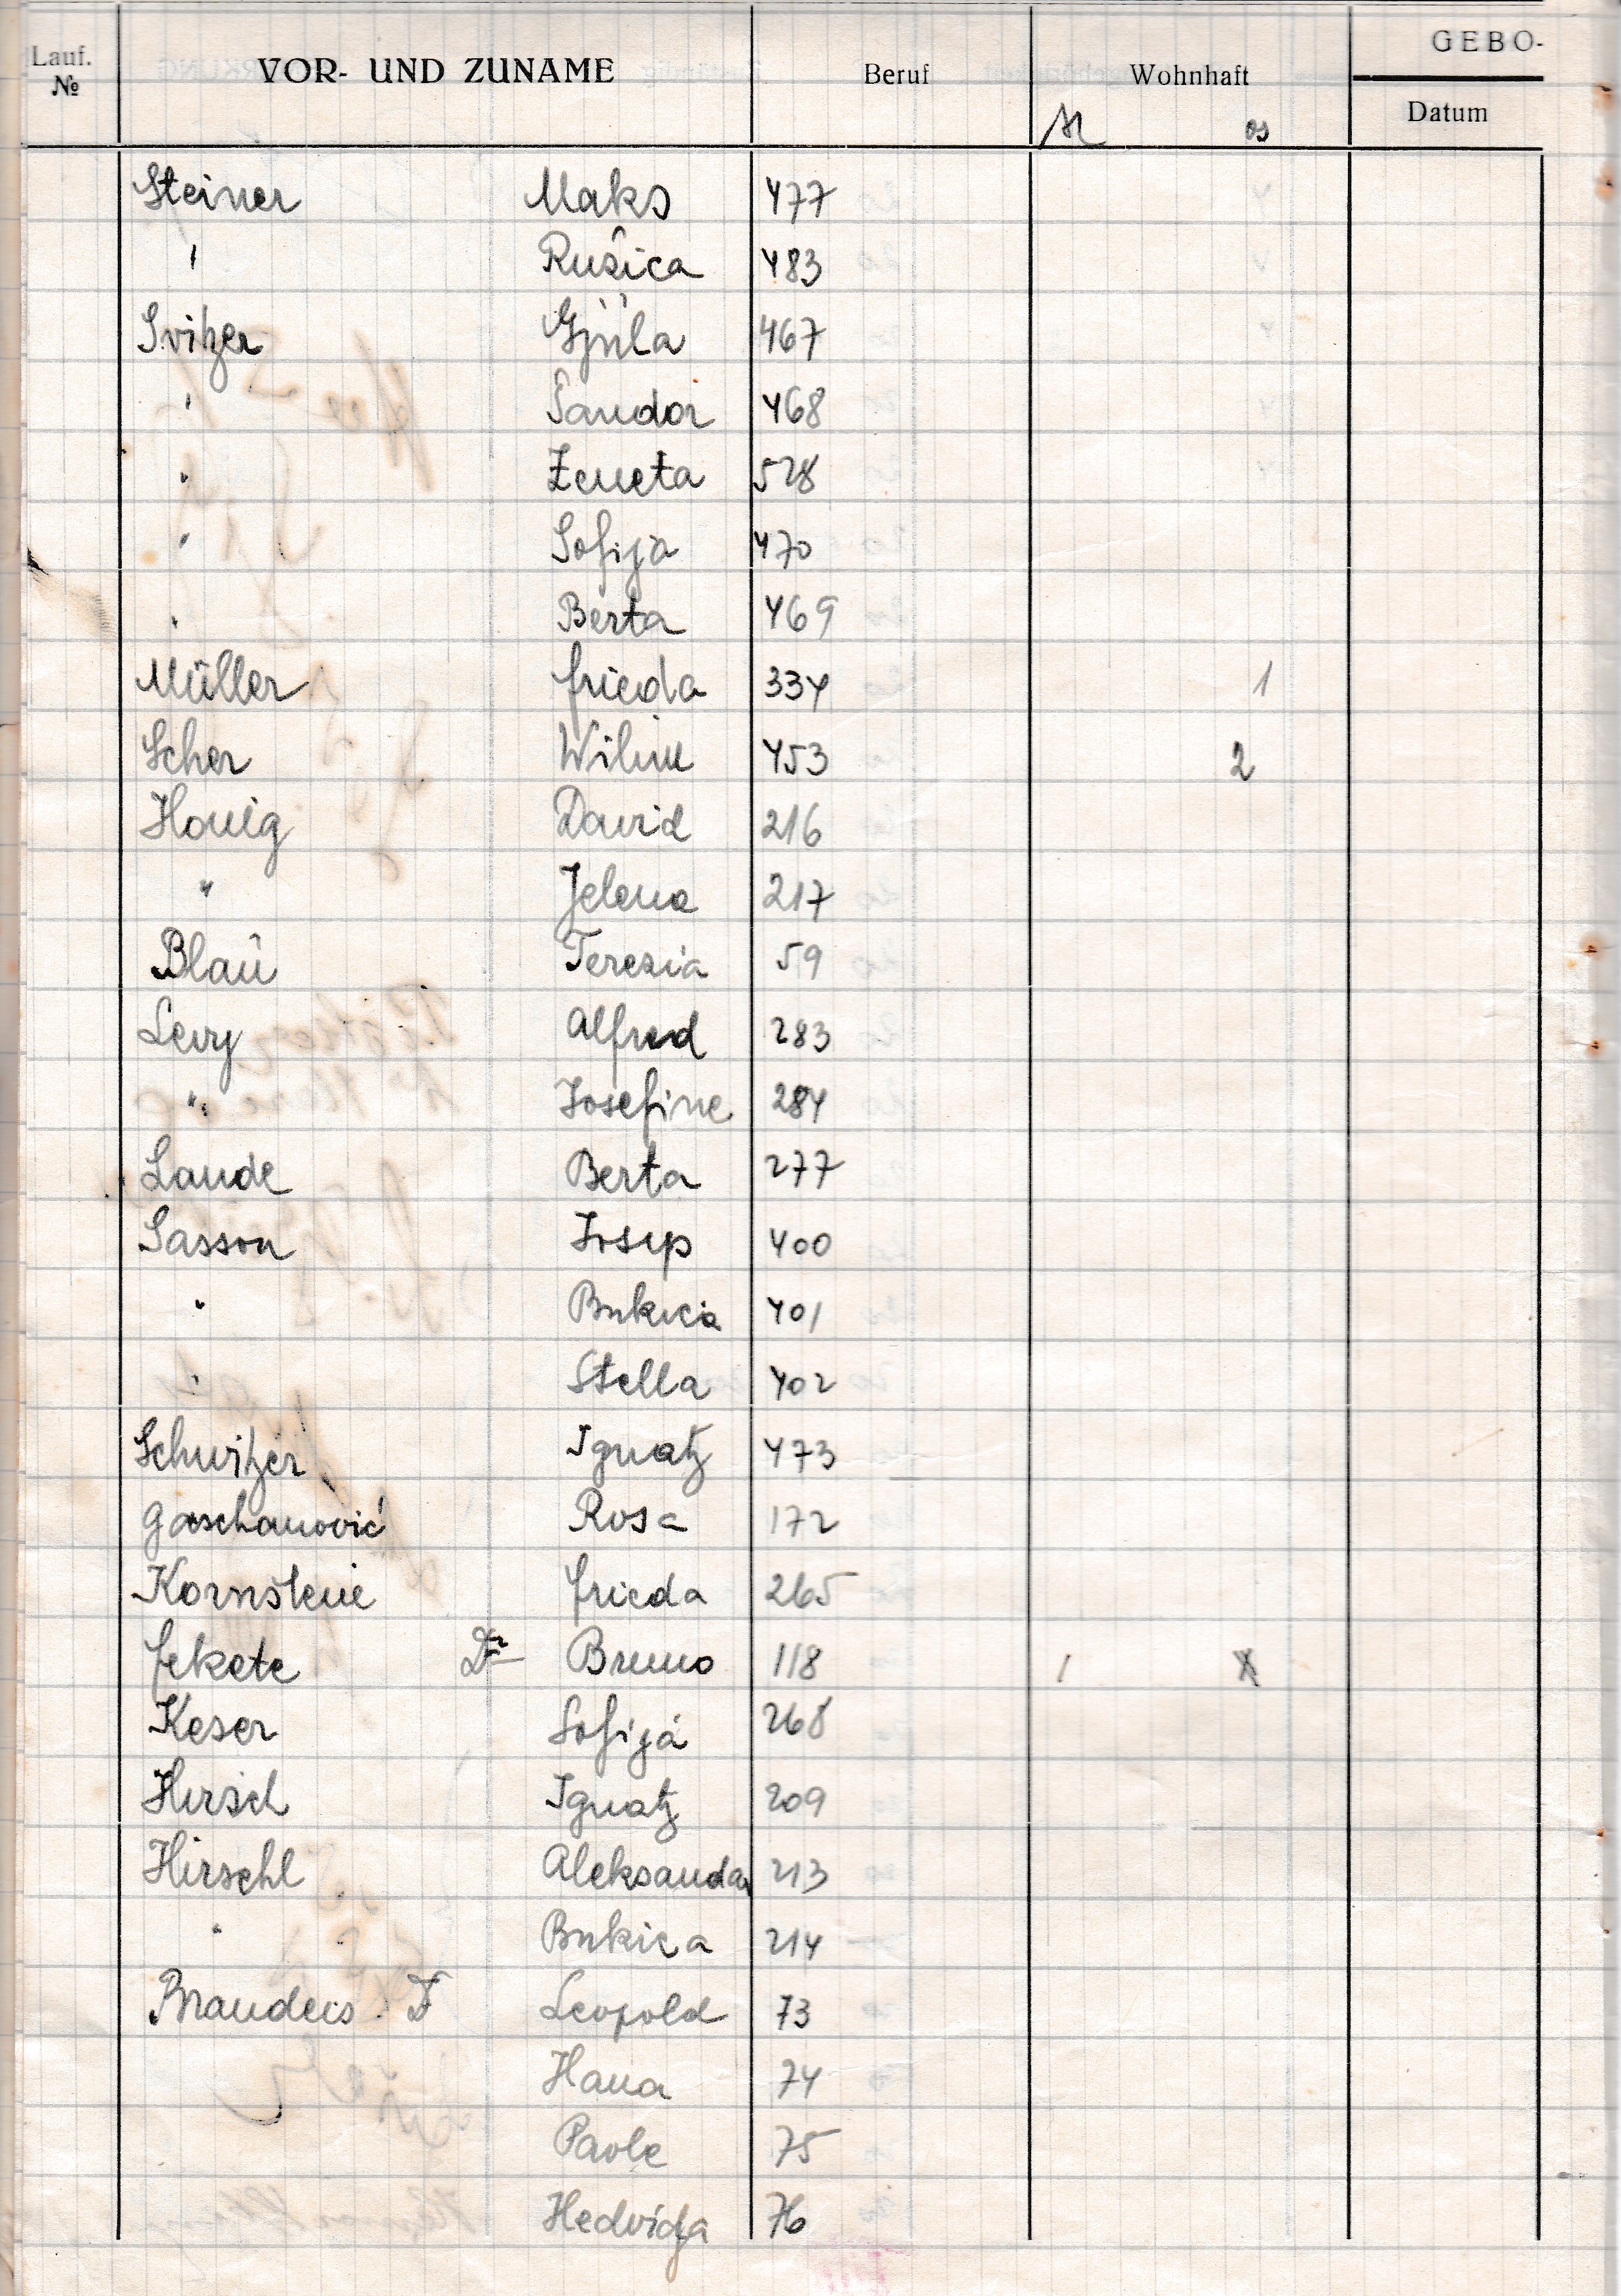 Lauf. № VOR- UND ZUNAME Beruf Wohnhaft GEBO-
Datum
os
Steiner Maks 477
" Rušica 483
Svitzer Gjula 467
" Šandor 468
" Ženeta 528
" Sofija 470
" Berta 469
Müller Frieda 334 1
Scher Wilim 453 2
Honig David 216
" Jelena 217
Blau Terezia 59
Levy Alfred 283
" Josefine 284
Lande Berta 277
Sasson Josip 400
" Bukica 401
" Stella 402
Schwitzer Ignatz 473
Gaschanović Rosa 172
Kornštein Frieda 265
Fekete Dr Bruno 118 1
Keser Sofija 268
Hirsch Ignatz 209
Hirschl Aleksandar 213
" Bukica 214
Brandeis Dr Leopold 73
Hana 74
Pavle 75
Hedviga 76